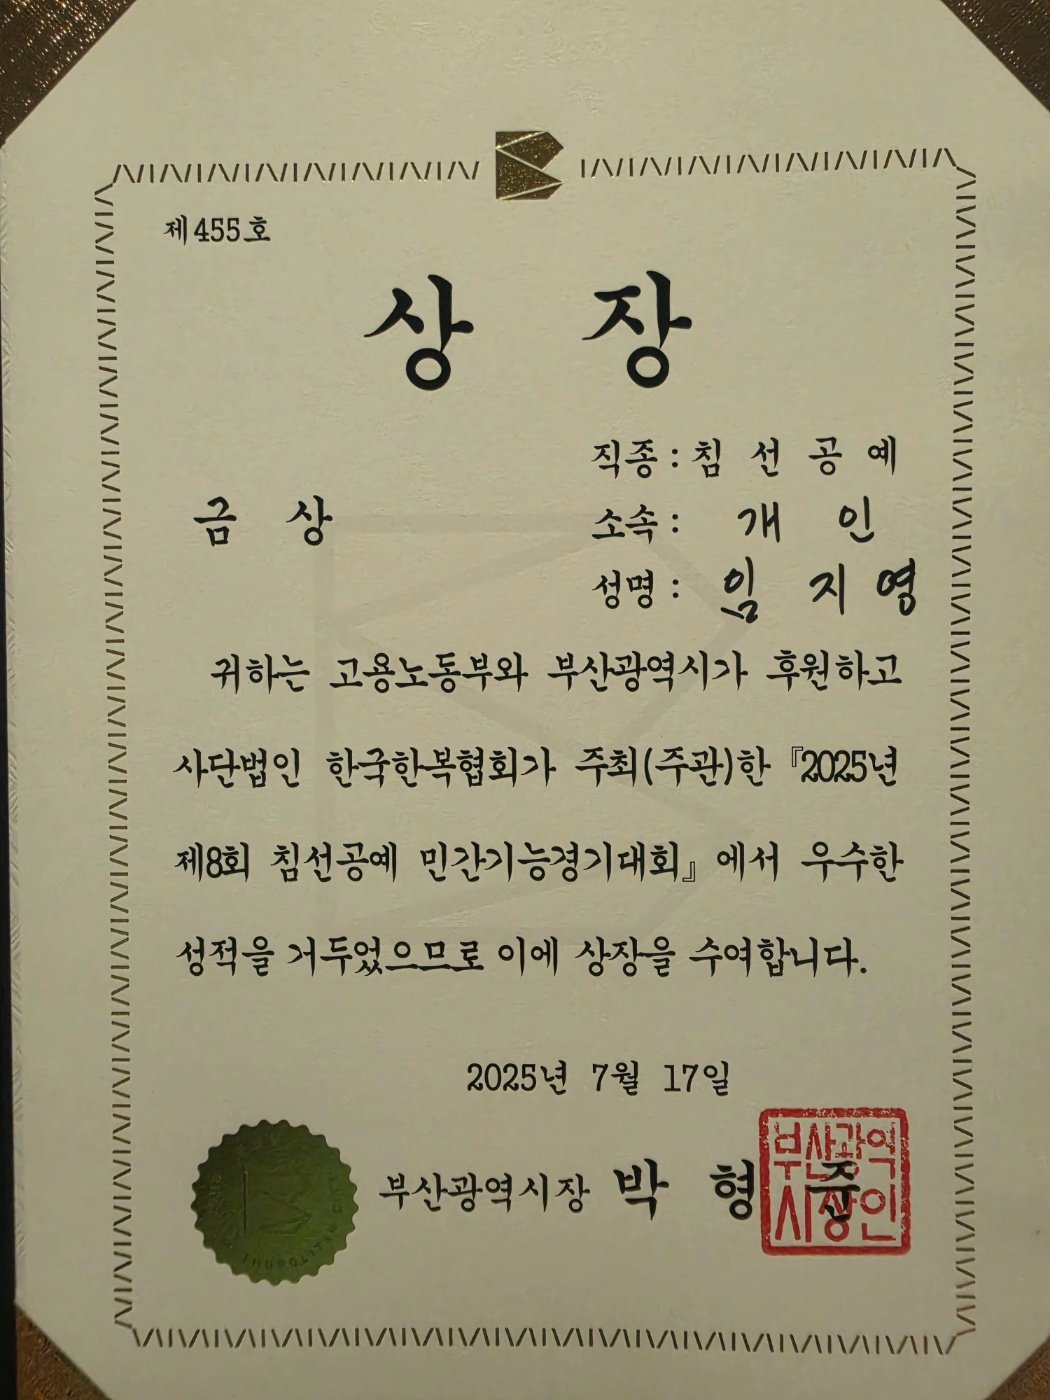 제455호
상 장
직종 : 침 선 공 예
금 상
소속 : 개 인
성명 : 임 지 영
귀하는 고용노동부와 부산광역시가 후원하고
사단법인 한국한복협회가 주최(주관)한 『2025년
제8회 침선공예 민간기능경기대회』에서 우수한
성적을 거두었으므로 이에 상장을 수여합니다.
2025년 7월 17일
부산광역시장 박 형 준
부산광역
시장인